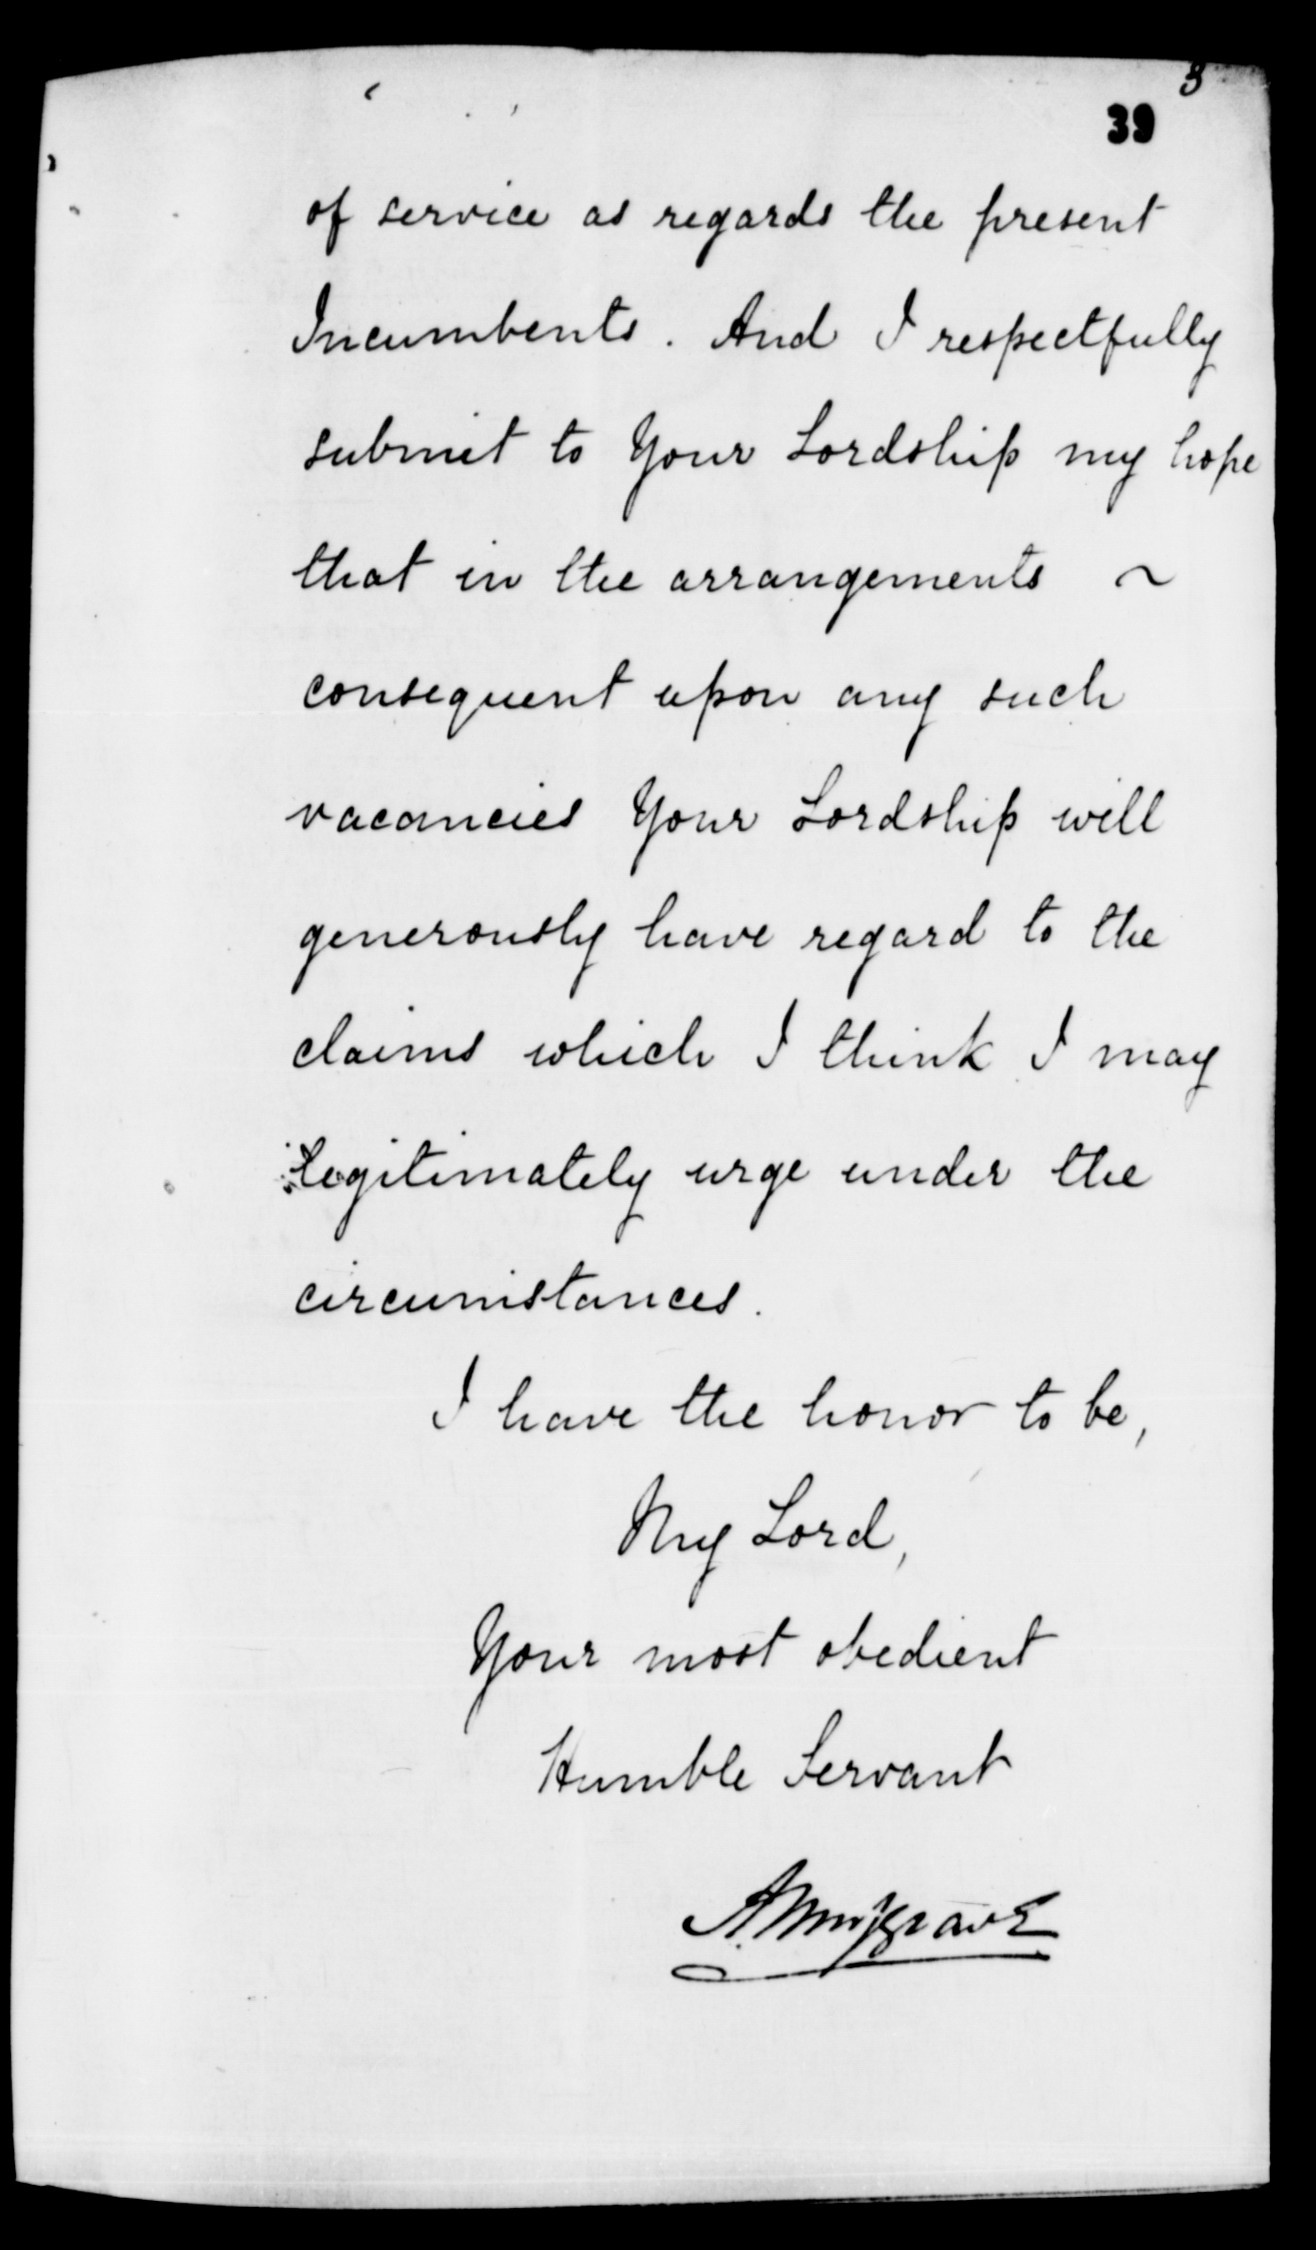 3
39
of service as regards the present
Incumbents. And I respectfully
submit to Your Lordship my hope
that in the arrangements ~
consequent upon any such
vacancies Your Lordship will
generously have regard to the
claims which I think I may
legitimately urge under the
circumstances.
I have the honor to be,
My Lord,
Your most obedient
Humble Servant
A. Musgrave